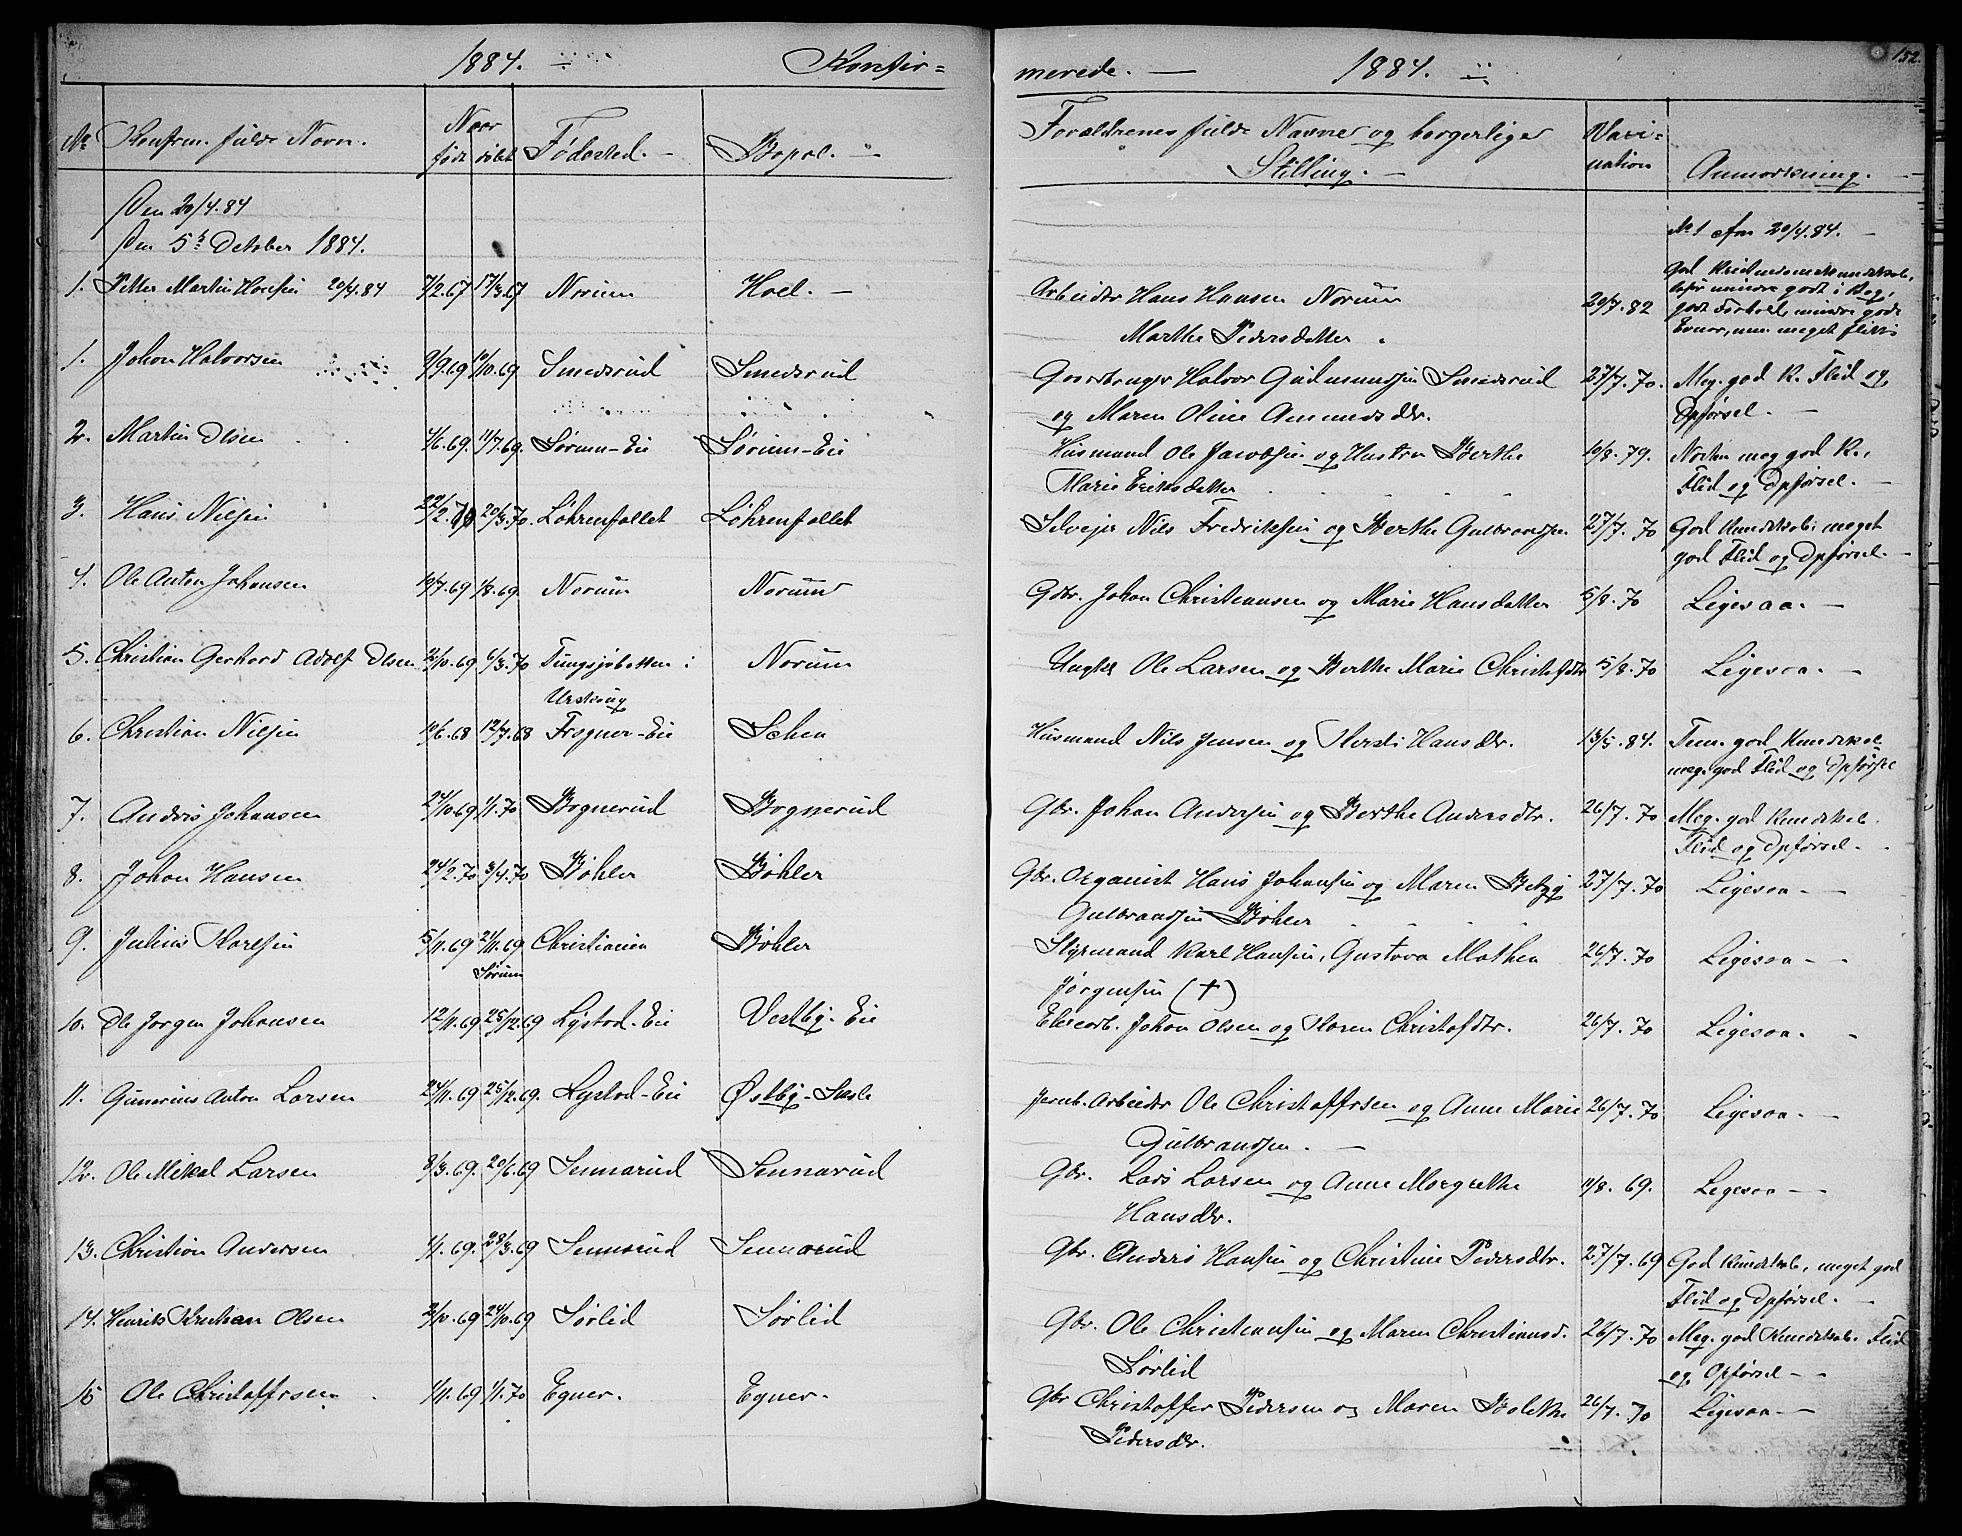 1884. Konfir=
No Konfirm. fulde Navn. Naar født døbt Fødested. - Bopæl. -
Den 20/4.84
Den 5te October 1884.
1. Petter Martin Hansen 20/4.84 7/2.67 17/3.67 Norum Hoel. -
1. Johan Halvorsen 9/9.69 10/10.69 Smedsrud Smedsrud
2. Martin Olsen 4/6.69. 11/7.69. Sørum-Eie Sørum-Eie
3. Hans Nilsen 22/2.70 20/3.70. Løhrenfallet Løhrenfallet
4. Ole Anton Johansen 10/7.69 1/8.69. Norum Norum
5. Christian Gerhard Adolf Olsen 2/10.69 6/3.70 Tungsjøbotten i Norum
Urskoug
6. Christian Nilsen 10/6.68 12/7.68 Frogner-Eie Schea
7. Anders Johansen 24/10.69 1/1.70 Bognerud Bognerud
8. Johan Hansen 24/2.70 3/4.70 Bøhler Bøhler
9. Julius Karlsen 5/11.69 21/11.69 Christiania Bøhler
Sørum
10. Ole Jørgen Johansen 12/11.69 25/12.69 Lystad-Eie Vestby-Eie
11. Gunerius Anton Larsen 24/11.69 25/12.69. Lystad-Eie Østby-
12. Ole Mikal Larsen 8/3.69. 20/6.69 Sennerud Sennerud
13. Christian Andersen 1/1.69. 28/3.69 Sennerud Sennerud
14. Henrik Kristian Olsen 2/10.69 24/10.69 Sørlid Sørlid
15 Ole Christoffersen 1/11.69 1/1.70 Egner. Egner.
merede. - 1884. 152.
Forældrenes fulde Navne og borgerlige Vaxi=
Stilling. - nation Anmærkning.
No 1 cfm 20/4.84. -
Arbeider Hans Hansen Norum 20/7.82 God Kristendomskundskab,
mindre godt i Bog,
godt Forhold, mindre gode
Marthe Pedersdatter Evner, men meget flittig
Gaardbruger Halvor Gudmundsen Smedsrud 27/7.70. Meg. god K. Flid og
og Maren Oline Amundsdtr. Opførsel. -
Husmand Ole Jacobsen og Hustru Berthe 10/8.79. Næsten meg god K.,
Marie Eriksdatter Flid og Opførsel. -
Selveier Nils Fredriksen og Berthe Gulbrandsen 27/7.70 God Kundskab, meget
god Flid og Opførsel. -
Gdbr. Johan Christiansen og Marie Hansdatter 5/8.70 Ligesaa. -
Ungkr Ole Larsen og Berthe Marie Christofdtr 5/8.70 Ligesaa. -
Husmand Nils Jensen og Kersti Hansdtr. 13/5.84. Tem. god Kundskab
meg. god Flid og Opførsel
Gbr. Johan Andersen og Berthe Andersdtr. 26/7.70 Meg. god Kundskab.
Flid og Opførsel. -
Gbr. Organist Hans Johansen og Maren Betzy 27/7.70 Ligesaa -
Gulbrandsen Bøhler
Styrmand Karl Hansen, Gustava Mathea 26/7.70 Ligesaa -
Jørgensen (†)
Eiecarb. Johan Olsen og Karen Christofdtr. 26/7.70 Ligesaa. -
Jernb. Arbeider Ole Christoffersen og Anne Marie 26/7.70 Ligesaa. -
Gulbrandsen. -
Gbr. Lars Larsen og Anne Margrethe 11/8.69. Ligesaa -
Hansdtr.
Gbr. Anders Hansen og Christine Pedersdtr. 27/7.69 God Kundskab, meget god
Flid og Opførsel. -
Gbr. Ole Christiansen og Maren Christiansd. 26/7.70 Meg. god Kundskab. Flid
Sørlid og Opførsel -
Gbr Christoffer Pedersen og Maren Bolette 26/7.70 Ligesaa -
Pedersdtr.